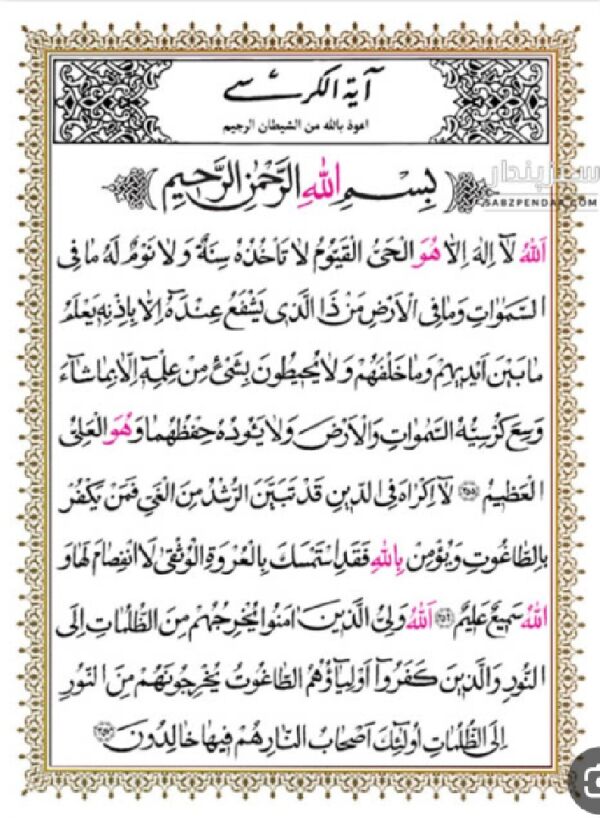 آية الكرسي
اعوذ بالله من الشيطان الرجيم
بِسْمِ اللهِ الرَّحْمٰنِ الرَّحِيمِ
سبزپندار
SABZPENDAR.COM
اَللهُ لَآ اِلٰهَ اِلَّا هُوَ الْحَىُّ الْقَيُّومُ لَا تَأْخُذُهُ سِنَةٌ وَلَا نَوْمٌ لَهُ مَا فِى
السَّمٰوَاتِ وَمَا فِى الْاَرْضِ مَنْ ذَا الَّذِى يَشْفَعُ عِنْدَهُٓ اِلَّا بِاِذْنِهِ يَعْلَمُ
مَا بَيْنَ اَيْدِيهِمْ وَمَا خَلْفَهُمْ وَلَا يُحِيطُونَ بِشَىْءٍ مِنْ عِلْمِهِٓ اِلَّا بِمَا شَآءَ
وَسِعَ كُرْسِيُّهُ السَّمٰوَاتِ وَالْاَرْضَ وَلَا يَئُودُهُ حِفْظُهُمَا وَهُوَ الْعَلِىُّ
الْعَظِيمُ ﴿٢٥٥﴾ لَآ اِكْرَاهَ فِى الدِّينِ قَدْ تَبَيَّنَ الرُّشْدُ مِنَ الْغَىِّ فَمَنْ يَكْفُرْ
بِالطَّاغُوتِ وَيُؤْمِنْ بِاللهِ فَقَدِ اسْتَمْسَكَ بِالْعُرْوَةِ الْوُثْقٰى لَا انْفِصَامَ لَهَا وَ
اللهُ سَمِيعٌ عَلِيمٌ ﴿٢٥٦﴾ اَللهُ وَلِىُّ الَّذِينَ اٰمَنُوا يُخْرِجُهُمْ مِنَ الظُّلُمَاتِ اِلَى
النُّورِ وَالَّذِينَ كَفَرُوٓا اَوْلِيَآؤُهُمُ الطَّاغُوتُ يُخْرِجُونَهُمْ مِنَ النُّورِ
اِلَى الظُّلُمَاتِ اُولٰٓئِكَ اَصْحَابُ النَّارِ هُمْ فِيهَا خَالِدُونَ ﴿٢٥٧﴾